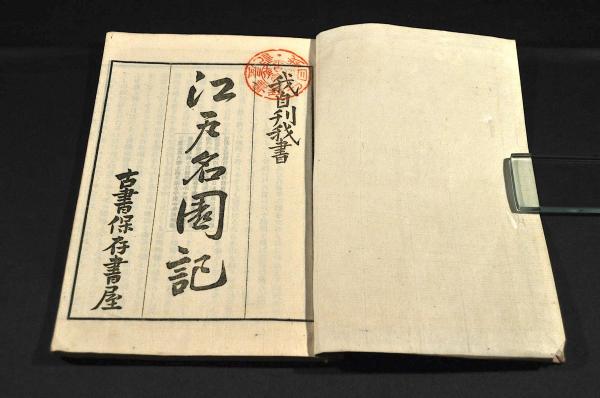 我自刊我書
江戸名園記
古書保存書屋